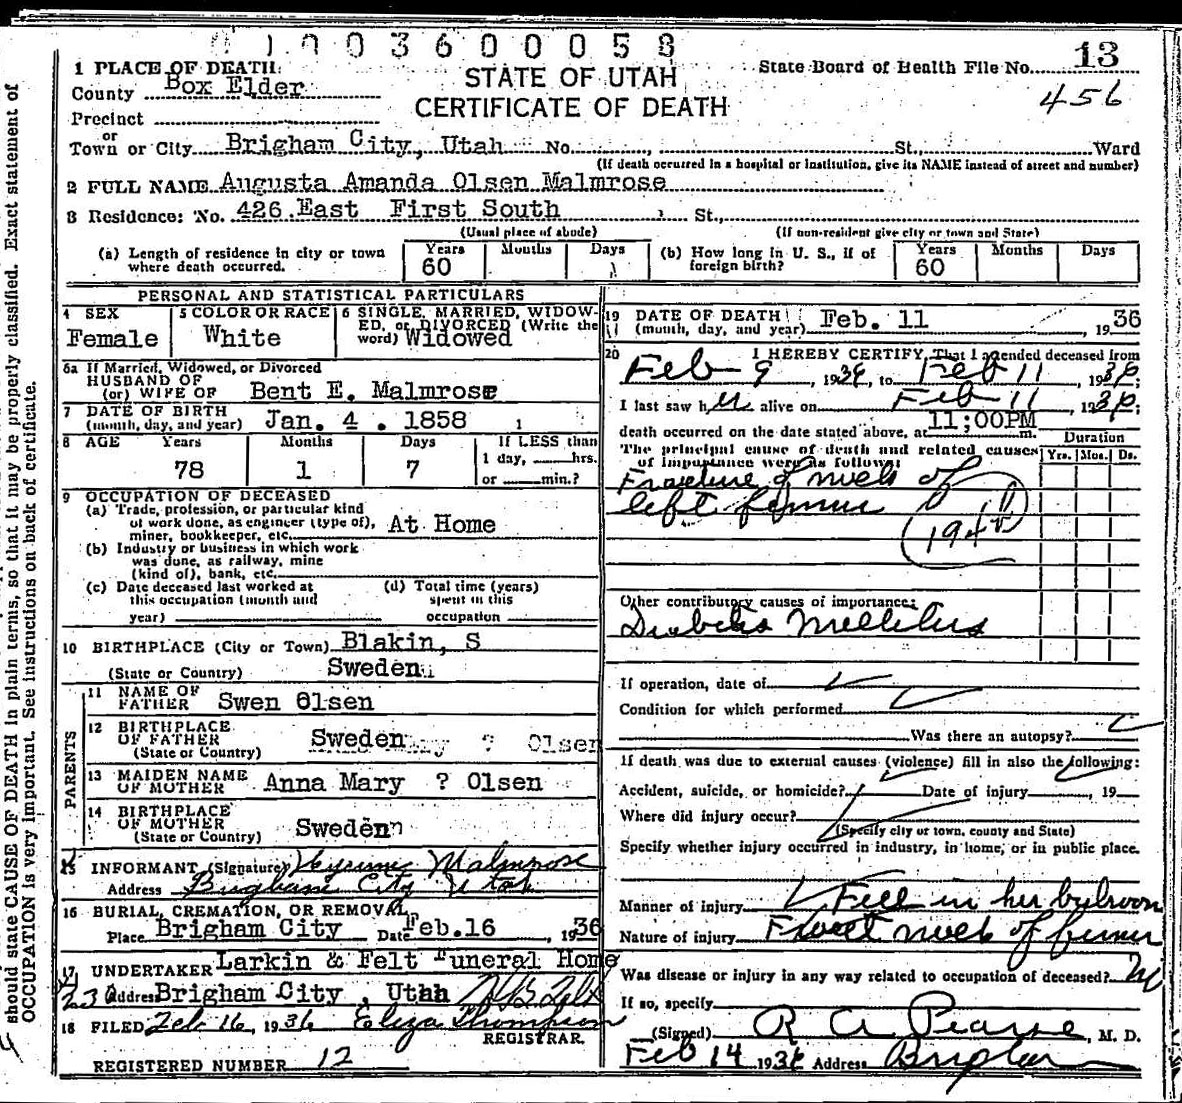 0100360005 8
1 PLACE OF DEATH: STATE OF UTAH State Board of Health File No. 13
County Box Elder CERTIFICATE OF DEATH 456
Precinct
or
Town or City Brigham City, Utah No. St., Ward
(If death occurred in a hospital or institution, give its NAME instead of street and number)
2 FULL NAME Augusta Amanda Olsen Malmrose
3 Residence: No. 426 East First South St.,
(Usual place of abode) (If non-resident give city or town and State)
(a) Length of residence in city or town where death occurred. Years 60 Months Days
(b) How long in U. S., if of foreign birth? Years 60 Months Days
PERSONAL AND STATISTICAL PARTICULARS
4 SEX Female
5 COLOR OR RACE White
6 SINGLE, MARRIED, WIDOWED, or DIVORCED (Write the word) Widowed
6a If Married, Widowed, or Divorced
HUSBAND OF
(or) WIFE OF Bent E. Malmrose
7 DATE OF BIRTH
(month, day, and year) Jan. 4 . 1858
8 AGE Years 78 Months 1 Days 7 If LESS than 1 day, hrs. or min.?
9 OCCUPATION OF DECEASED
(a) Trade, profession, or particular kind of work done, as engineer (type of), miner, bookkeeper, etc. At Home
(b) Industry or business in which work was done, as railway, mine (kind of), bank, etc.
(c) Date deceased last worked at this occupation (month and year)
(d) Total time (years) spent in this occupation
10 BIRTHPLACE (City or Town) Blakin, S
(State or Country) Sweden
PARENTS
11 NAME OF FATHER Swen Olsen
12 BIRTHPLACE OF FATHER
(State or Country) Sweden ? Olsen
13 MAIDEN NAME OF MOTHER Anna Mary ? Olsen
14 BIRTHPLACE OF MOTHER
(State or Country) Sweden
15 INFORMANT (Signature) Malmrose
Address Brigham City Utah
16 BURIAL, CREMATION, OR REMOVAL
Place Brigham City Date Feb.16, 1936
17 UNDERTAKER Larkin & Felt Funeral Home
Address Brigham City , Utah
18 FILED Feb 16, 1936 Eliza Thompson
REGISTRAR.
REGISTERED NUMBER 12
19 DATE OF DEATH
(month, day, and year) Feb. 11, 1936
20 I HEREBY CERTIFY, That I attended deceased from
Feb 9, 1936, to Feb 11, 1936;
I last saw her alive on Feb 11, 1936;
death occurred on the date stated above, at 11;00PM m.
The principal cause of death and related causes of importance were as follows: Duration Yrs. Mos. Ds.
Fracture of neck of
left femur
(194
Other contributory causes of importance:
Diabetes Mellitus
If operation, date of
Condition for which performed
Was there an autopsy?
If death was due to external causes (violence) fill in also the following:
Accident, suicide, or homicide? Date of injury, 19
Where did injury occur?
(Specify city or town, county and State)
Specify whether injury occurred in industry, in home, or in public place.
Manner of injury Fell in her bedroom
Nature of injury Fract neck of femur
Was disease or injury in any way related to occupation of deceased? No
If so, specify
(Signed) R A Pearse, M. D.
Feb 14 1936 Address Brigham
should state CAUSE OF DEATH in plain terms, so that it may be properly classified. Exact statement of
OCCUPATION is very important. See instructions on back of certificate.